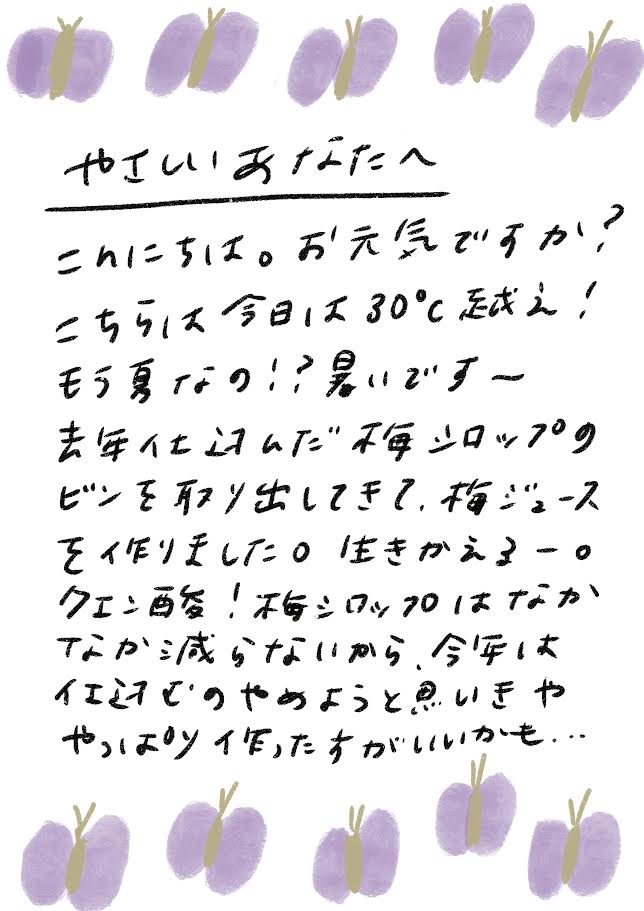 やさしいあなたへ
こんにちは。お元気ですか?
こちらは今日は30℃越え!
もう夏なの!?暑いです〜
去年仕込んだ梅シロップの
ビンを取り出してきて、梅ジュース
を作りました。生きかえるー。
クエン酸!梅シロップはなか
なか減らないから、今年は
仕込むのやめようと思いきや
やっぱり作ったすがいいかも...